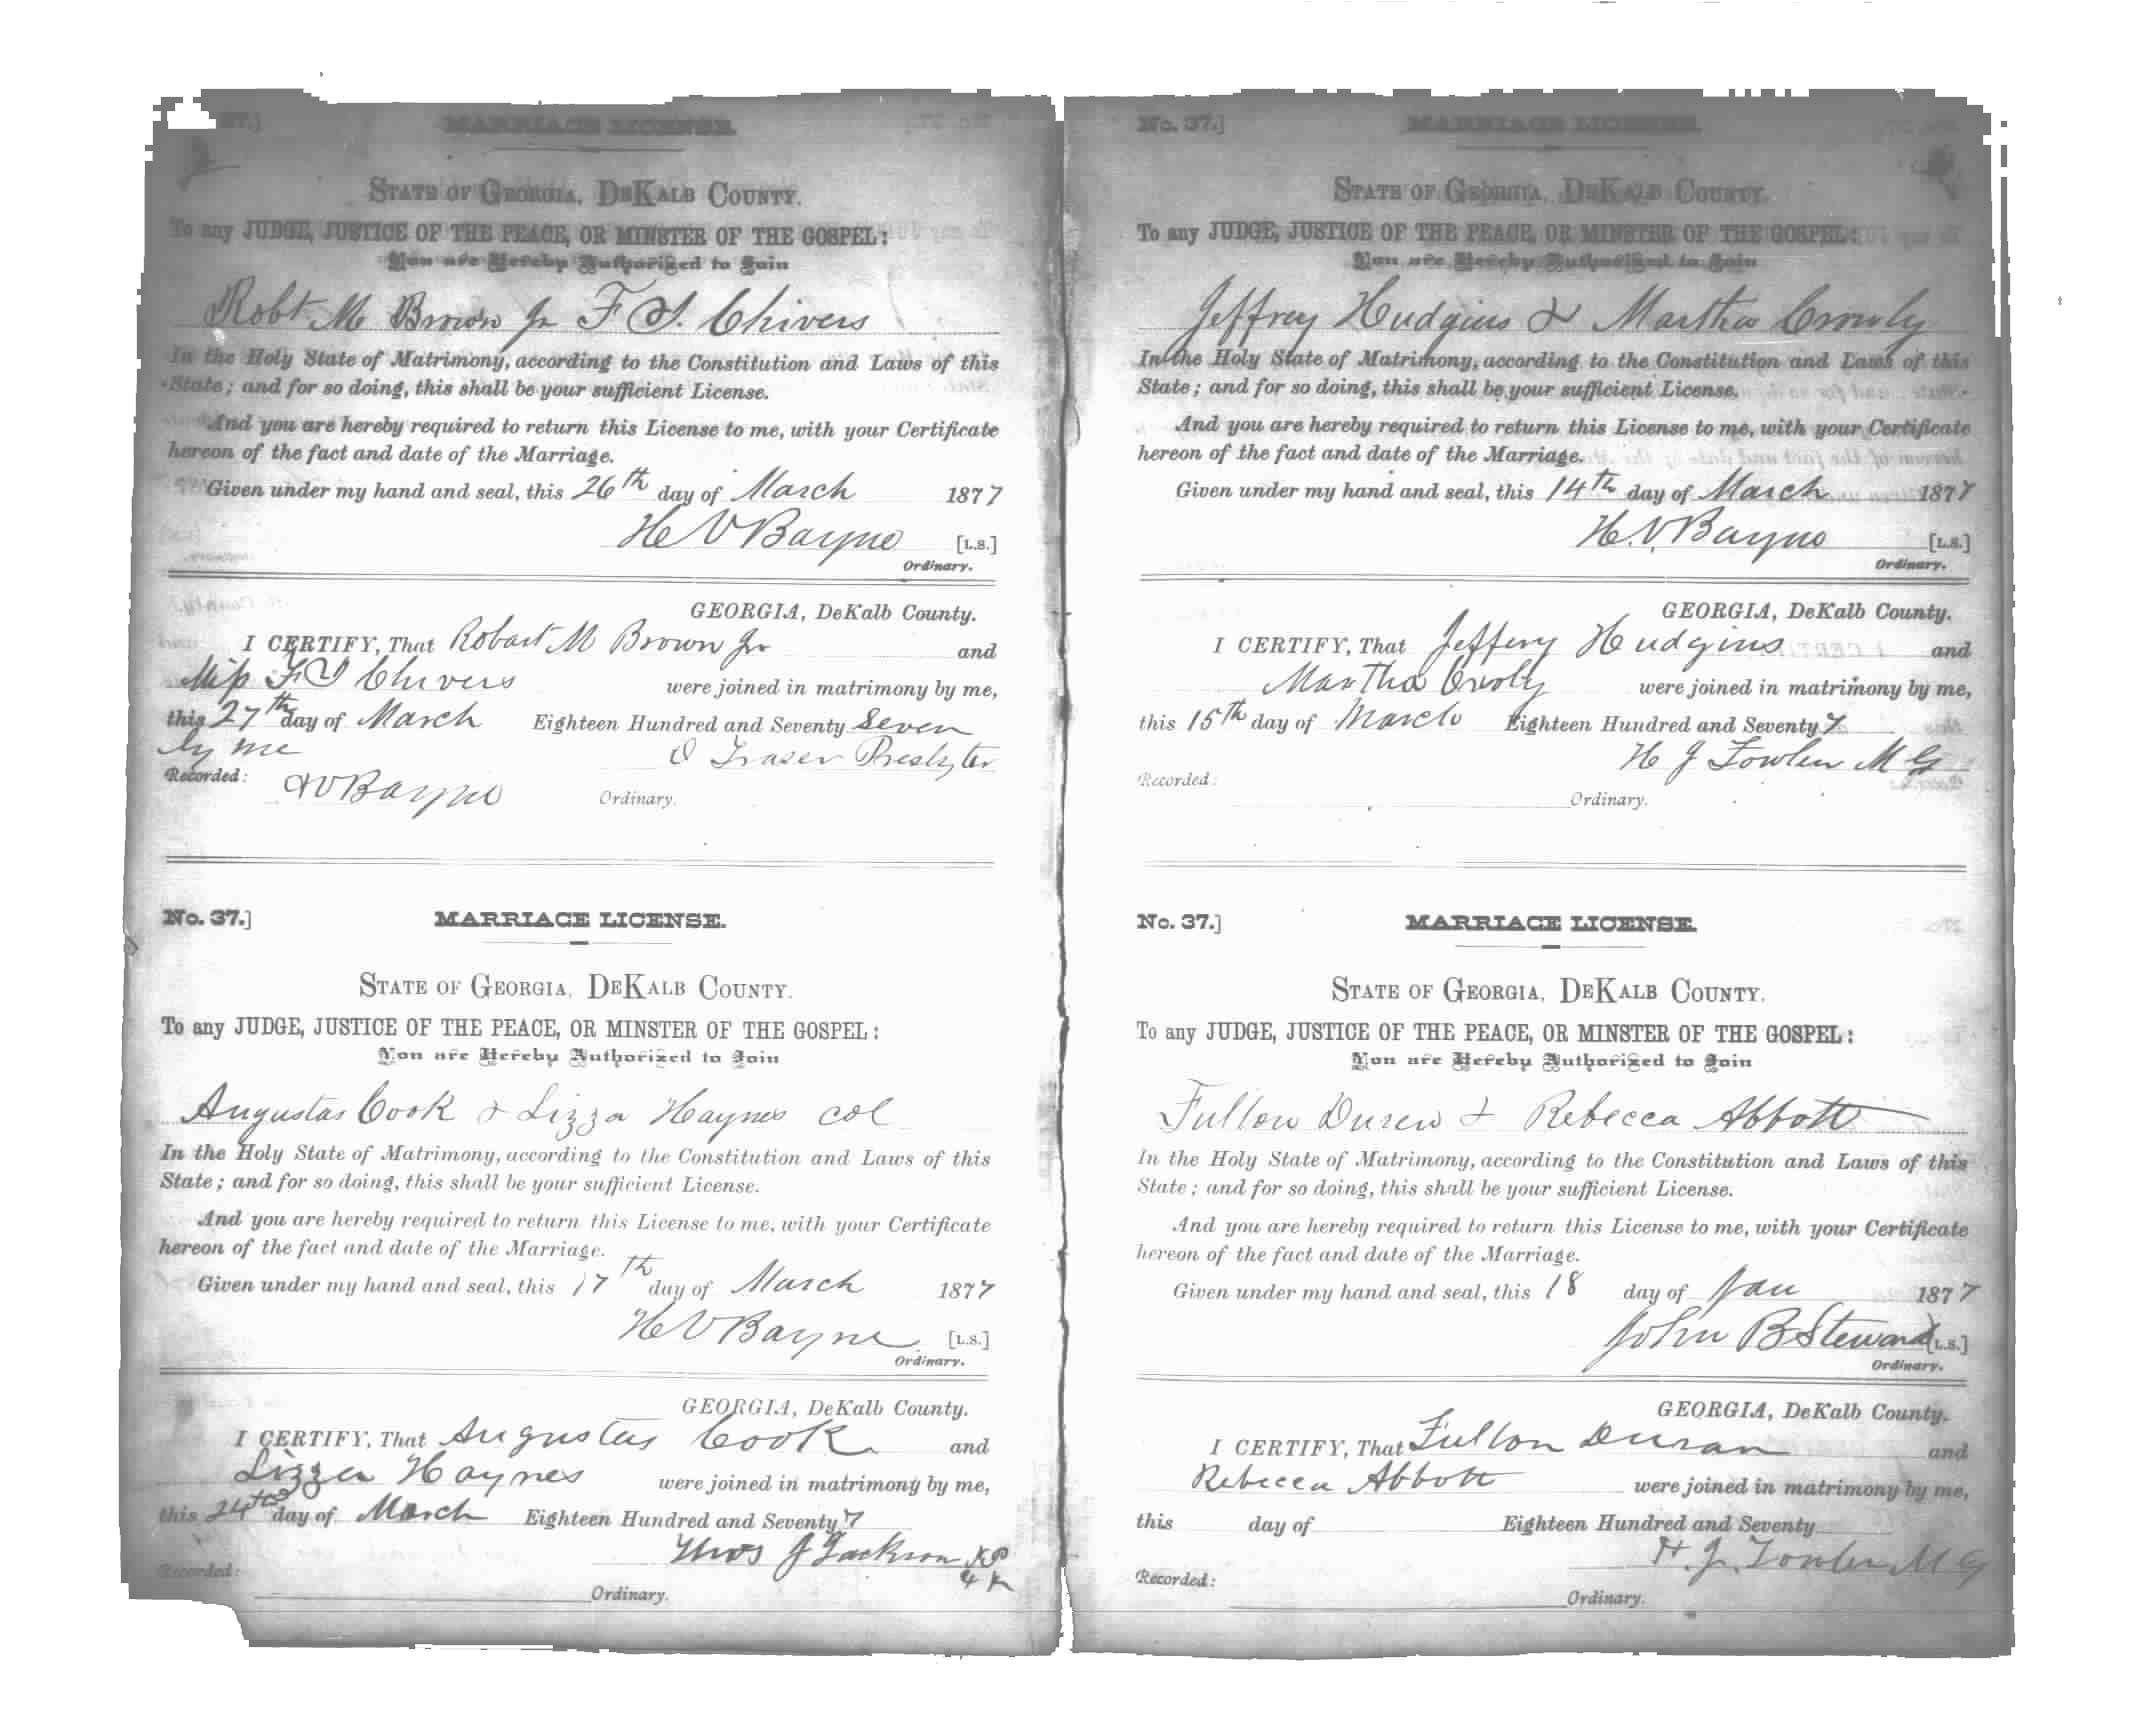 37.]
MARRIAGE LICENSE.
2
STATE OF GEORGIA, DEKALB COUNTY.
To any JUDGE, JUSTICE OF THE PEACE, OR MINSTER OF THE GOSPEL:
You are Hereby Authorized to Join
Robt. M Brown Jr F S. Chivers
In the Holy State of Matrimony, according to the Constitution and Laws of this
State; and for so doing, this shall be your sufficient License.
And you are hereby required to return this License to me, with your Certificate
hereon of the fact and date of the Marriage.
Given under my hand and seal, this 26th day of March 1877
H V Bayne [L.S.]
Ordinary.
GEORGIA, DeKalb County.
I CERTIFY, That Robart M Brown Jr and
Miss F S Chivers were joined in matrimony by me,
this 27th day of March Eighteen Hundred and Seventy Seven
by me O Fraser Presbyter
Recorded: H V Bayne Ordinary.
No. 37.]
MARRIAGE LICENSE.
STATE OF GEORGIA, DEKALB COUNTY.
To any JUDGE, JUSTICE OF THE PEACE, OR MINSTER OF THE GOSPEL:
You are Hereby Authorized to Join
Augustas Cook & Lizza Haynes col
In the Holy State of Matrimony, according to the Constitution and Laws of this
State; and for so doing, this shall be your sufficient License.
And you are hereby required to return this License to me, with your Certificate
hereon of the fact and date of the Marriage.
Given under my hand and seal, this 17th day of March 1877
H V Bayne [L.S.]
Ordinary.
GEORGIA, DeKalb County.
I CERTIFY, That Augustas Cook and
Lizza Haynes were joined in matrimony by me,
this 24th day of March Eighteen Hundred and Seventy 7
Thos J Jackson
Recorded:
Ordinary.
No. 37.]
MARRIAGE LICENSE.
STATE OF GEORGIA, DEKALB COUNTY.
To any JUDGE, JUSTICE OF THE PEACE, OR MINSTER OF THE GOSPEL:
You are Hereby Authorized to Join
Jeffrey Hudgins & Martha Crowly
In the Holy State of Matrimony, according to the Constitution and Laws of this
State; and for so doing, this shall be your sufficient License.
And you are hereby required to return this License to me, with your Certificate
hereon of the fact and date of the Marriage.
Given under my hand and seal, this 14th day of March 1877
H. V. Bayne [L.S.]
Ordinary.
GEORGIA, DeKalb County.
I CERTIFY, That Jeffery Hudgins and
Martha were joined in matrimony by me,
this 15th day of March Eighteen Hundred and Seventy 7
H J Fowler M G
Recorded:
Ordinary.
No. 37.]
MARRIAGE LICENSE.
STATE OF GEORGIA, DEKALB COUNTY.
To any JUDGE, JUSTICE OF THE PEACE, OR MINSTER OF THE GOSPEL:
You are Hereby Authorized to Join
Fulton Duren & Rebecca Abbott
In the Holy State of Matrimony, according to the Constitution and Laws of this
State; and for so doing, this shall be your sufficient License.
And you are hereby required to return this License to me, with your Certificate
hereon of the fact and date of the Marriage.
Given under my hand and seal, this 18 day of Jan 1877
John B Steward [L.S.]
Ordinary.
GEORGIA, DeKalb County.
I CERTIFY, That Fulton Duran and
Rebecca Abbott were joined in matrimony by me,
this day of Eighteen Hundred and Seventy
H. J. Fowler M G
Recorded:
Ordinary.